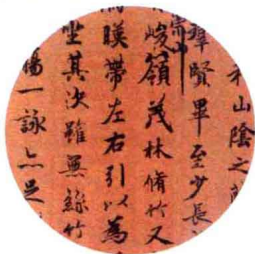 山陰之
羣賢畢至少長
崇
峻領茂林脩竹又
暎帶左右引以為
坐其次雖無絲竹
觴一詠亦足